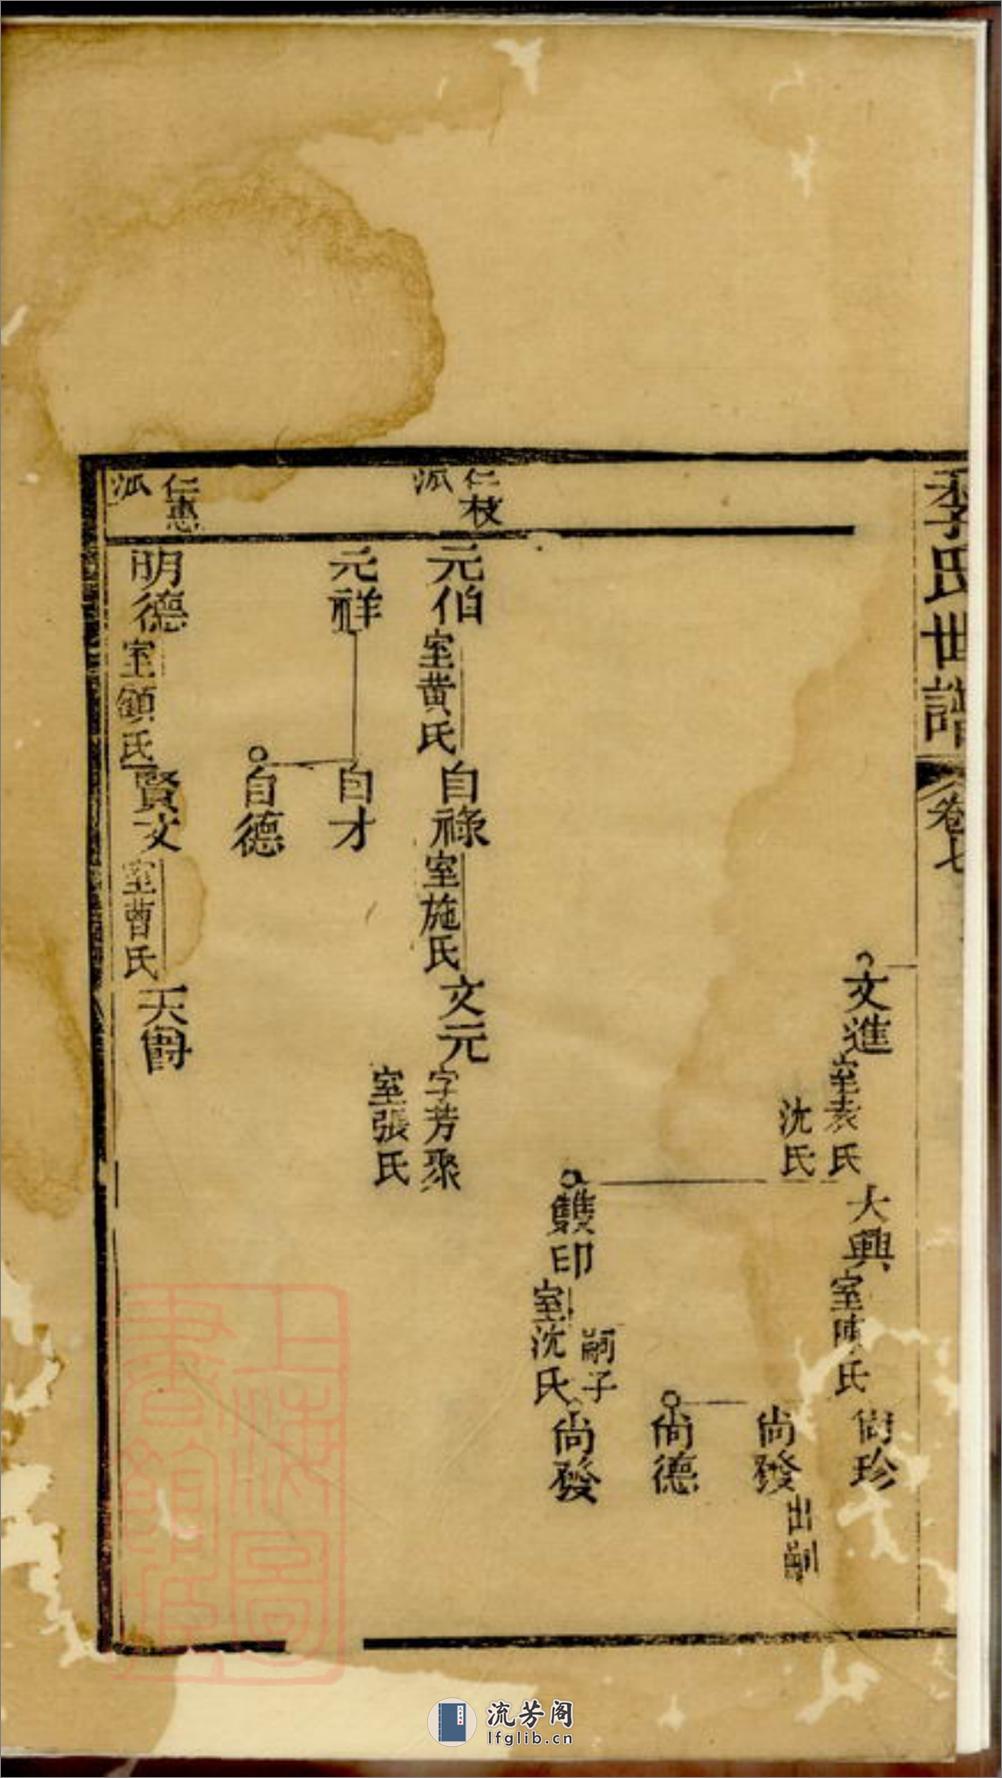 李氏世譜
卷七
文進
室袁氏
沈氏
大興
室陳氏
尙珍
尙發
出嗣
尙德
雙印
室沈氏
嗣子
尙發
仁枝
派
元伯
室黃氏
自祿
室施氏
文元
字芳聚
室張氏
元祥
自才
自德
仁惠
派
明德
室顧氏
賢文
室曹氏
天爵
上海圖
書館藏
流芳阁
lfglib.cn